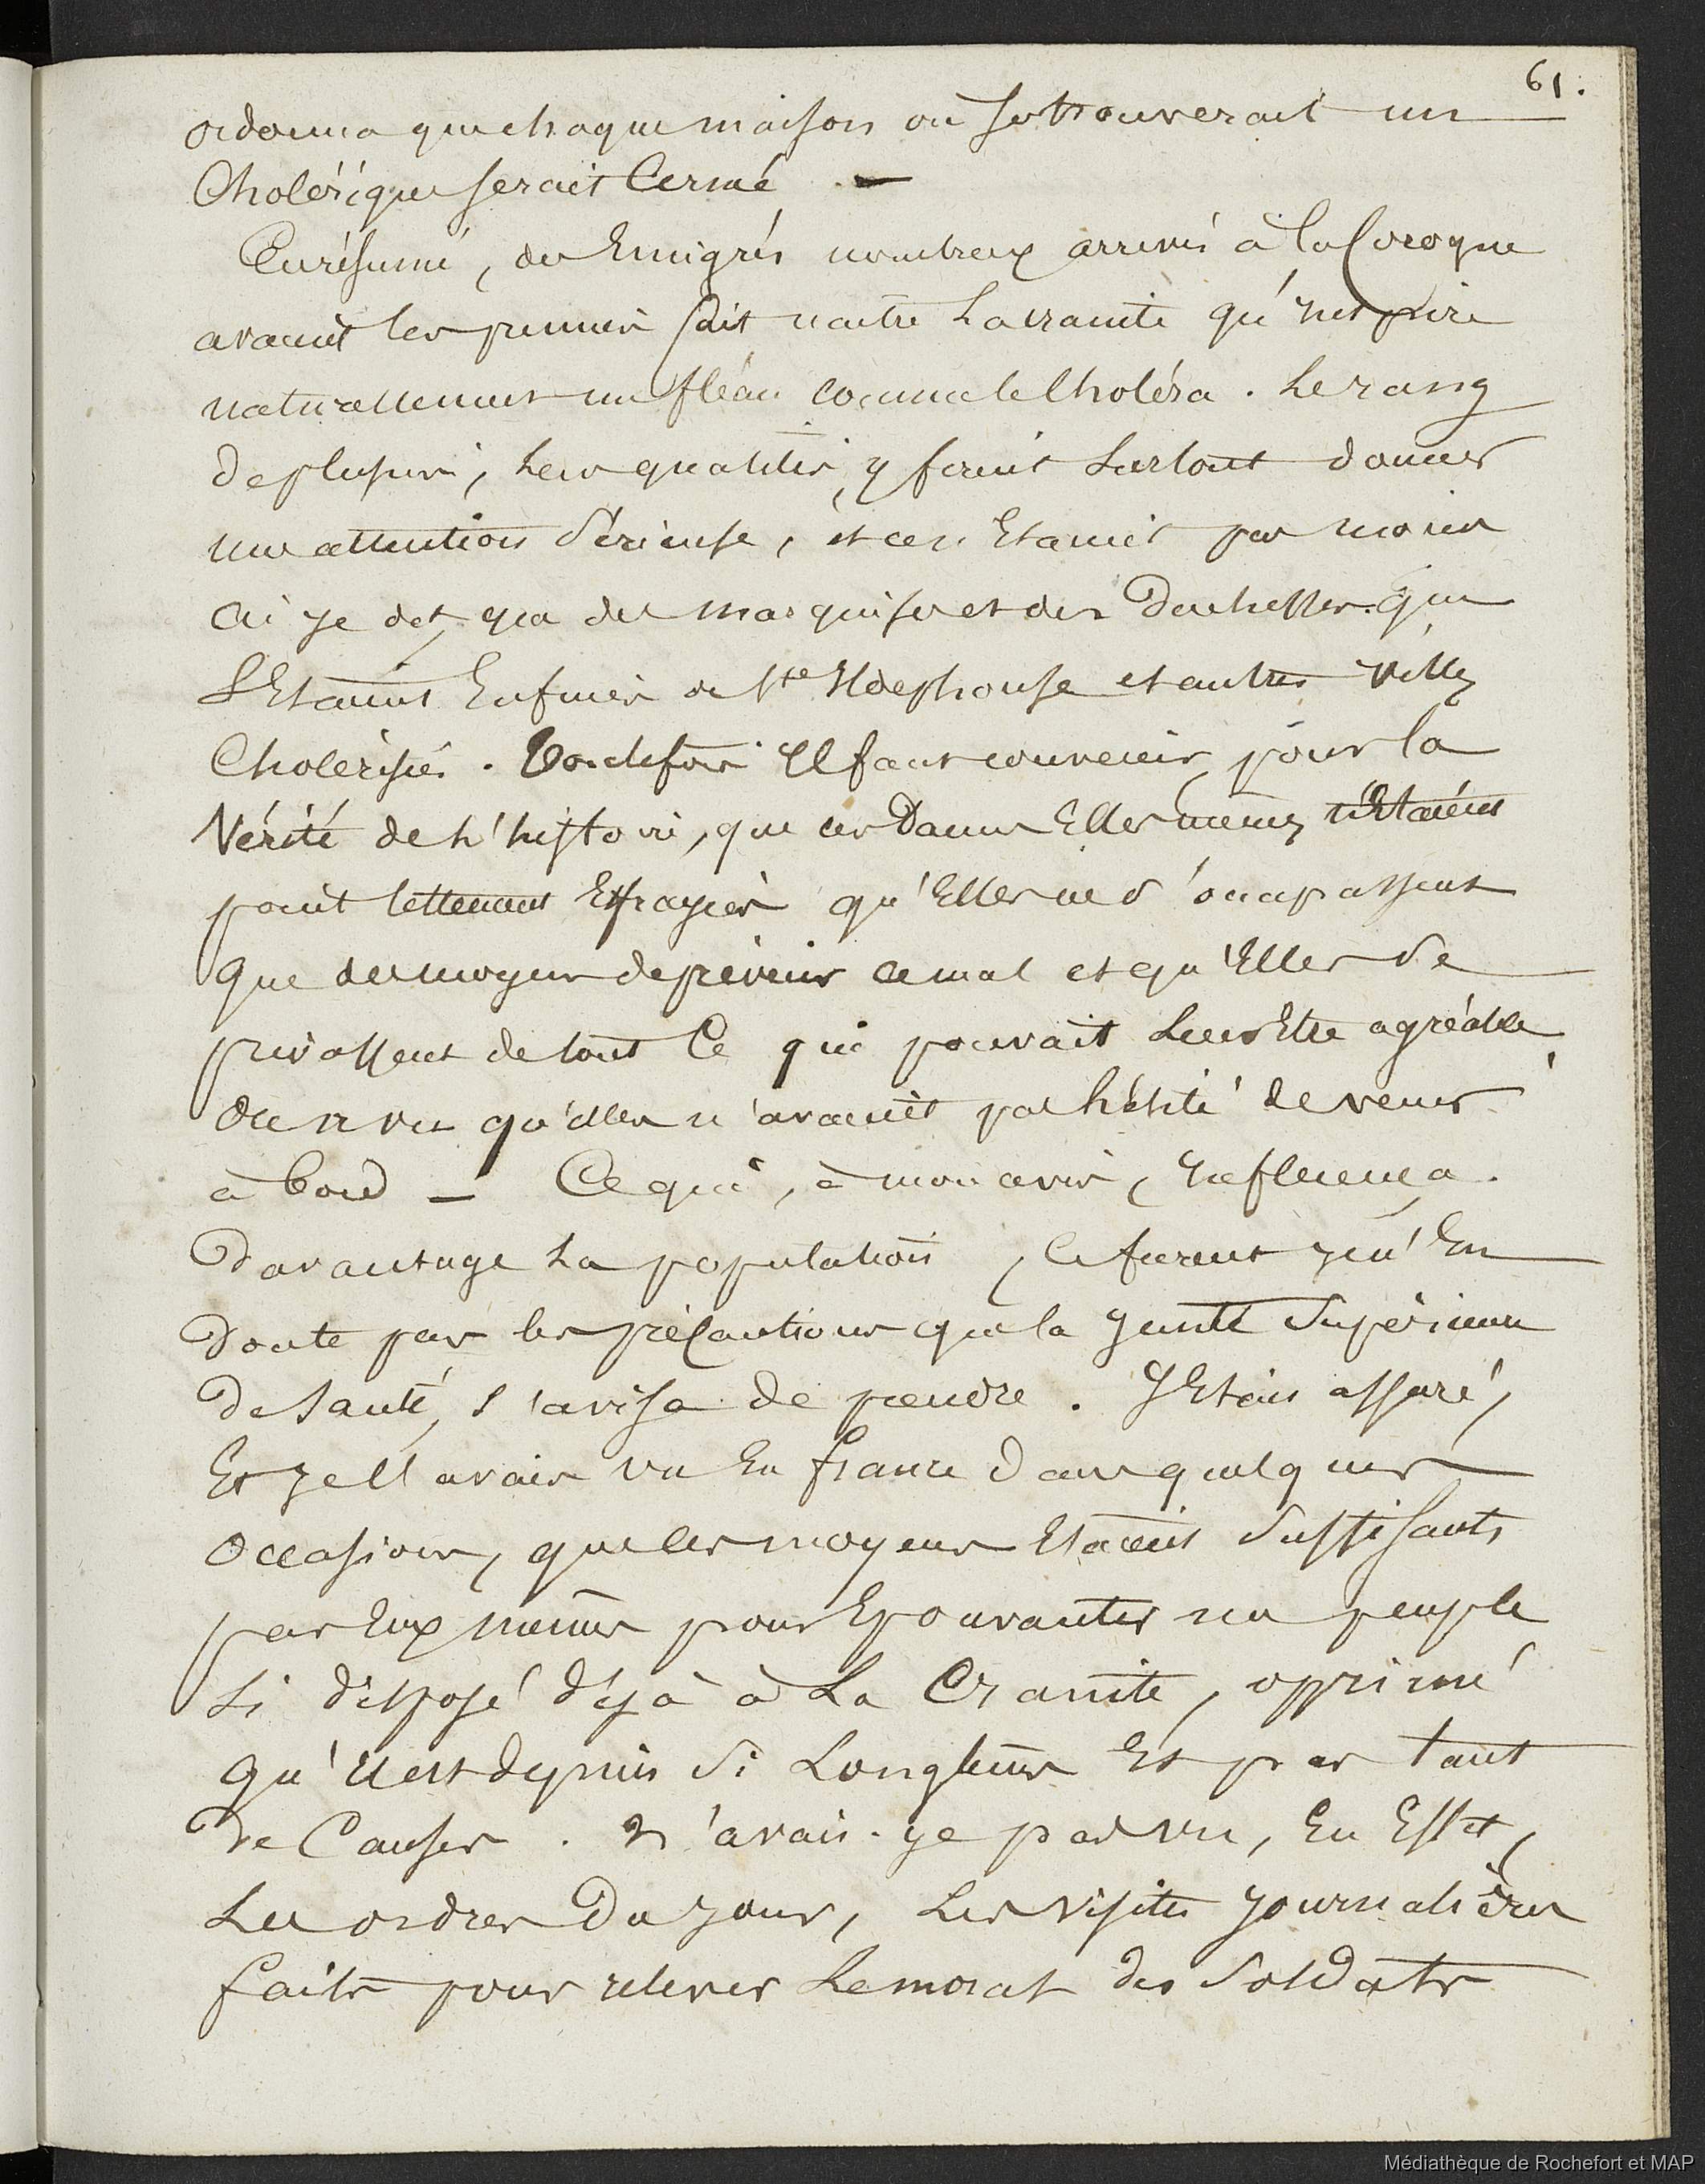 61.
ordonna que chaque maison où se trouverait un
Cholérique serait Cerné. —
En résumé, des Emigrés nombreux arrivés à la Corogne
avaient les premiers fait naitre La crainte qu'inspire
naturellement un fléau comme le Choléra. Le rang
de plusieurs, Leurs qualités, y firent Surtout donner
une attention Sérieuse, et ce n'Etaient pas moins
ai je dit, que des marquises et des Duchesses que
S'Etaient Enfuies de Ste Ildephonse et autres villes
Cholérisées. Toutefois Il faut convenir, pour la
Vérité de L'histoire, que ces Dames Elles mêmes n'Etaient
point tellement Effrayées qu'Elles ne s'occupassent
que des moyens de prévenir ce mal et qu'Elles se
privassent de tout Ce qui pouvait Leur Etre agréable,
On a vu qu'elles n'avaient pas hésité de venir
à bord — Ce qui, à mon avis, Influença
Davantage La population, Ce furent sans
Doute par les précautions que la Junte Supérieure
De Santé, s'avisa de prendre. J'Etais assuré,
Et Je l'avais vu En france Dans quelques
Occasions, que les moyens Etaient Suffisants
par Eux mêmes pour Epouvanter un peuple
Si disposé déjà à La Crainte, opprimé
qu'Il est depuis Si Longtems Et par tant
De Causes. N'avais-je pas vu, En Effet,
Les ordres Du Jour, Les visites Journalières
faites pour relever Le moral des Soldats
Médiathèque de Rochefort et MAP